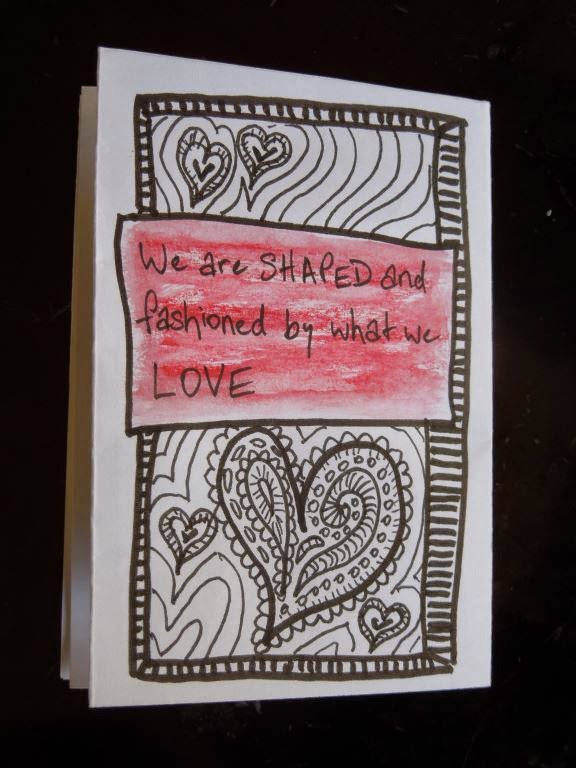 We are SHAPED and
fashioned by what we
LOVE